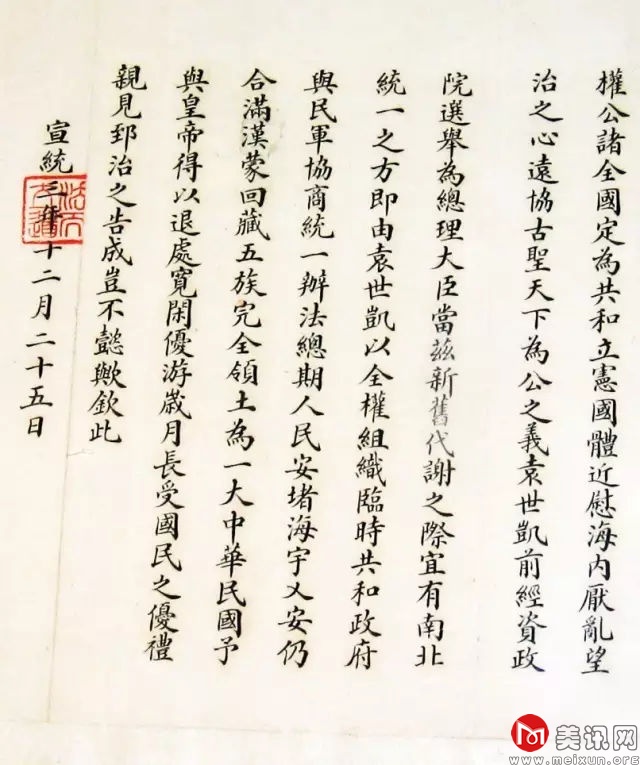 權公諸全國定為共和立憲國體近慰海內厭亂望
治之心遠協古聖天下為公之義袁世凱前經資政
院選舉為總理大臣當茲新舊代謝之際宜有南北
統一之方即由袁世凱以全權組織臨時共和政府
與民軍協商統一辦法總期人民安堵海宇乂安仍
合滿漢蒙回藏五族完全領土為一大中華民國予
與皇帝得以退處寬閑優游歲月長受國民之優禮
親見郅治之告成豈不懿歟欽此
宣統三年十二月二十五日
法天立道
美讯网
www.meixun.org